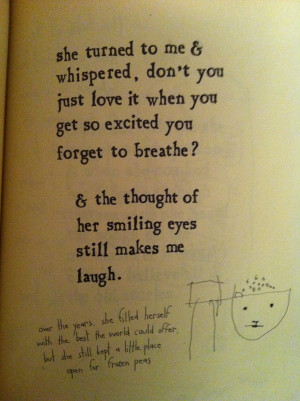 she turned to me &
whispered, don't you
just love it when you
get so excited you
forget to breathe?
& the thought of
her smiling eyes
still makes me
laugh.
over the years, she filled herself
with the best the world could offer,
but she still kept a little place
open for frozen peas